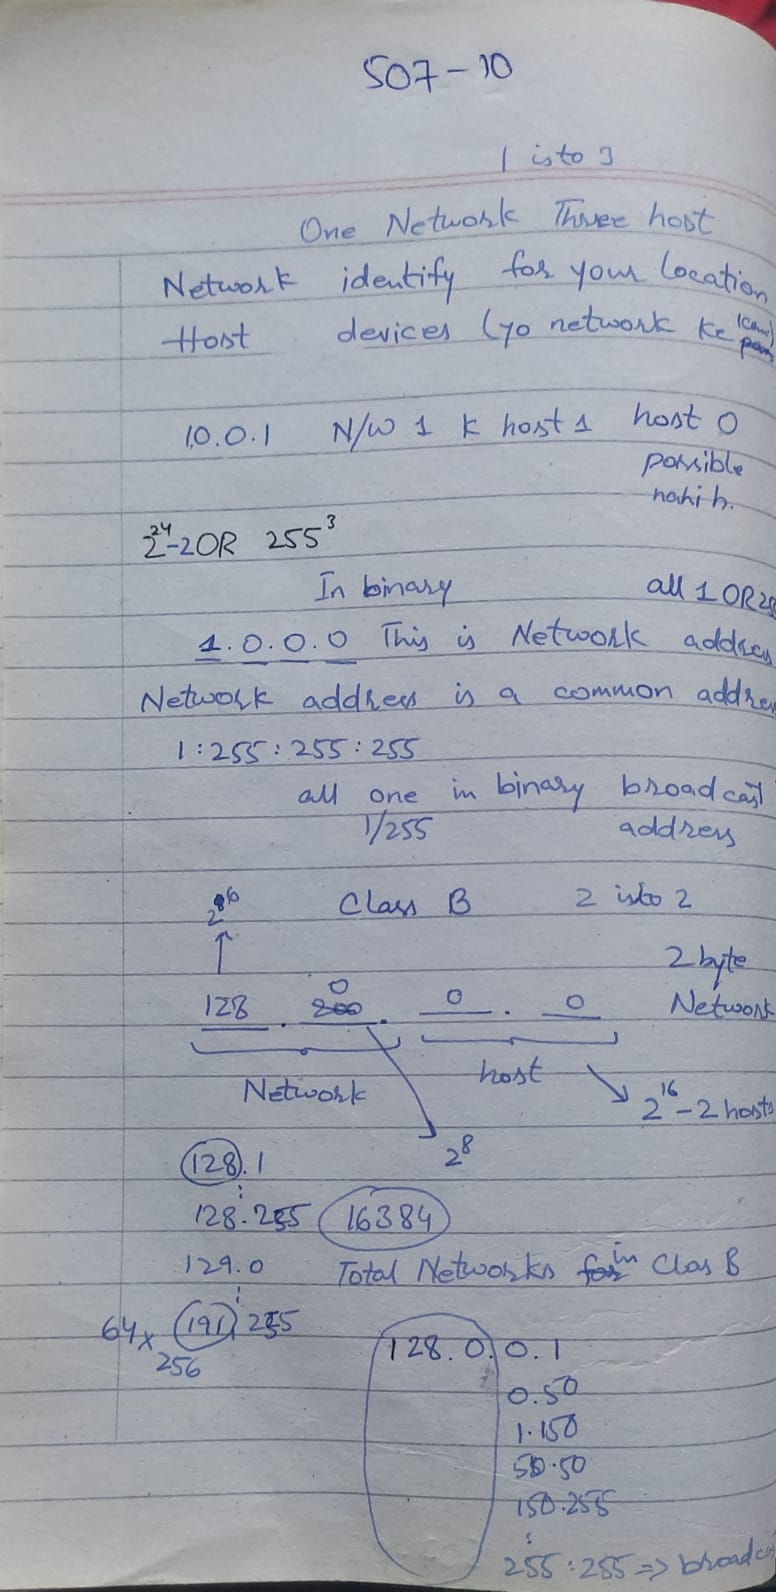 507-10
1 isto 3
One Network Three host
Network identify for your location
Host devices (yo network ke
10.0.1 N/W 1 k host 1 host 0
possible
nahi h.
2^24-2 OR 255^3
In binary all 1 OR 25
1.0.0.0 This is Network addres
Network address is a common addres
1:255:255:255
all one in binary broadcast
1/255 address
Class B 2 isto 2
2 byte
128 . 0 . 0 . 0 Network
Network host 2^16-2 hosts
128.1 2^8
128.255 16384
129.0 Total Networks in Clas B
64x 191.255
256
128.0.0.1
0.50
1.150
50.50
150.255
255:255 => broadca